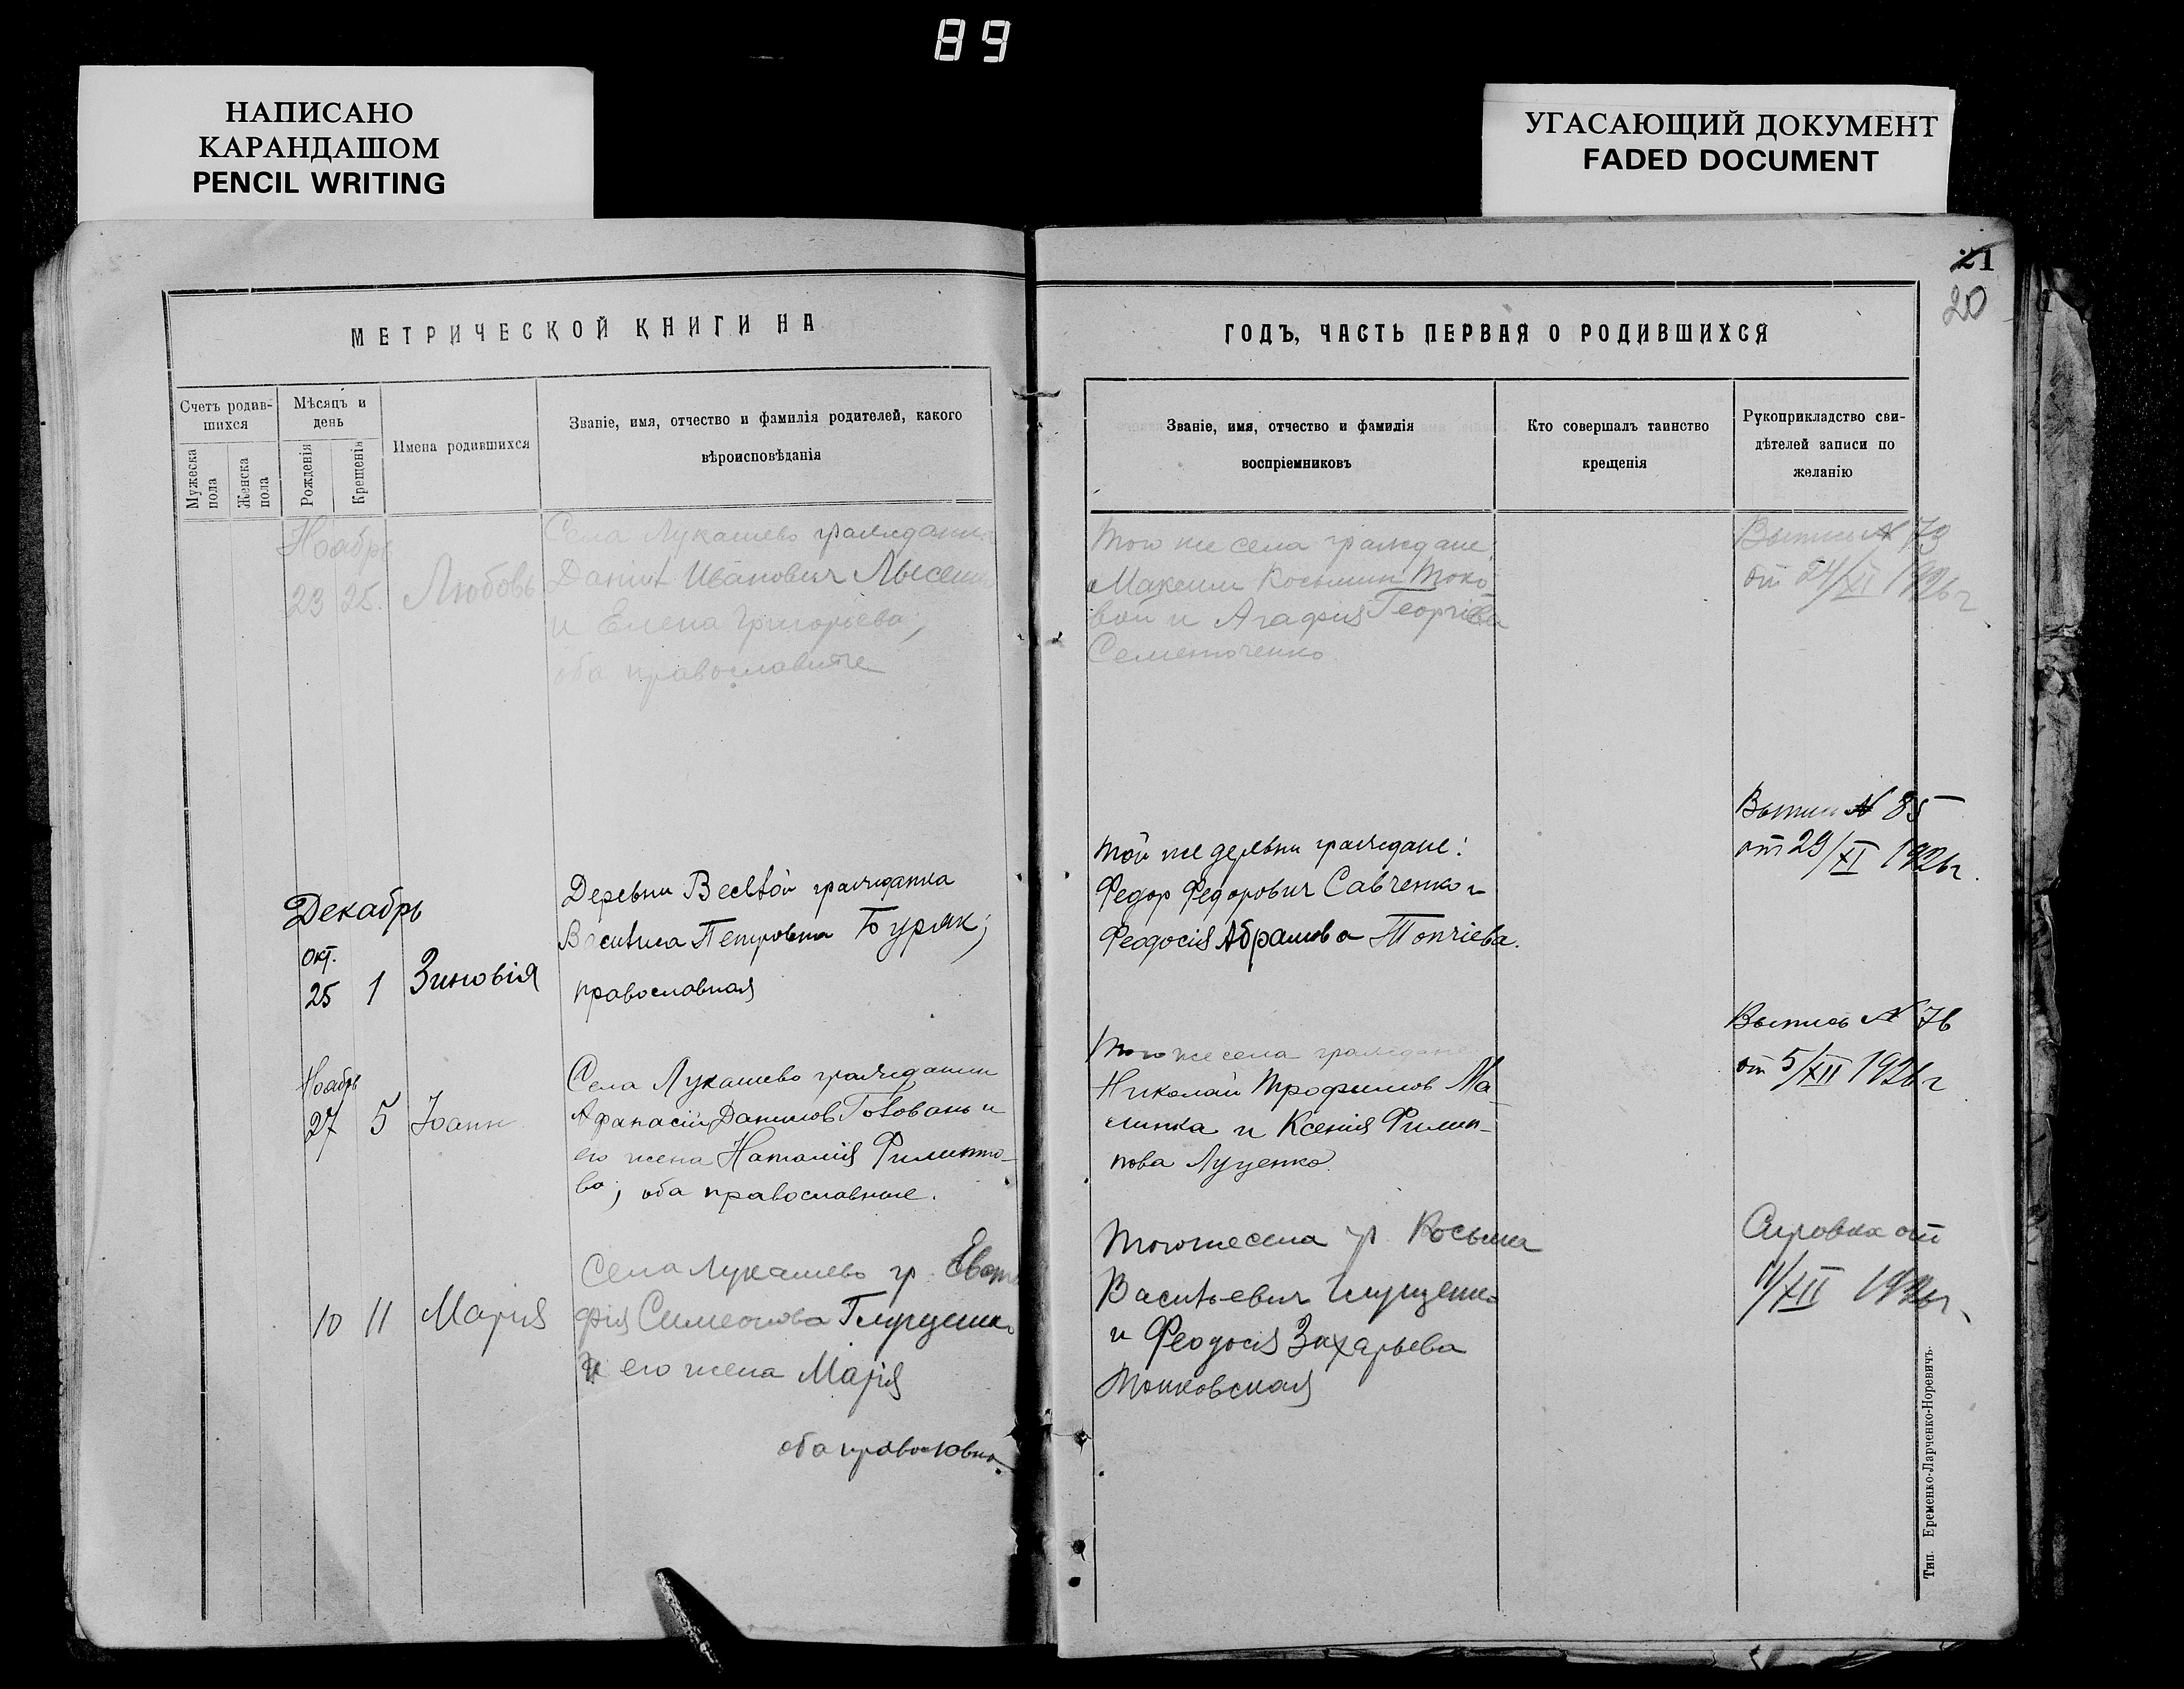 89
НАПИСАНО
КАРАНДАШОМ
PENCIL WRITING
УГАСАЮЩИЙ ДОКУМЕНТ
FADED DOCUMENT
МЕТРИЧЕСКОЙ КНИГИ НА
Счетъ родив-
шихся
Мужеска
пола
Женска
пола
Мѣсяцъ и
день
Рожденія
Крещенія
Имена родившихся
Званіе, имя, отчество и фамилія родителей, какого
вѣроисповѣданія
Ноябрь
23 25. Любовь
Села Лукашево гражданин
Даніил Иванович Лысенк
и Елена Григорьева;
оба православные
Декабрь
Окт.
25 1 Зиновія
Деревни Веселой гражданка
Василиса Петровна Буряк;
православная
Ноябрь
27 5 Іоанн
Села Лукашево гражданин
Афанасій Данилов Головань и
его жена Наталія Филиппо-
ва; оба православные.
10 11 Марія
Села Лукашево гр.
Симеонова Глущенко
и его жена Марія
оба православны
21
20
ГОДЪ, ЧАСТЬ ПЕРВАЯ О РОДИВШИХСЯ
Званіе, имя, отчество и фамилія
воспріемниковъ
Кто совершалъ таинство
крещенія
Рукоприкладство сви-
дѣтелей записи по
желанію
Того же села граждане
Максим Косьмин Токо-
вой и Агафія Георгіева
Семенюченко
Выпись № 73
от 24/XI 1926 г
Той же деревни граждане:
Федор Федорович Савченко и
Феодосія Абрамова Топчіева.
Выпись № 85
от 29/XI 1926 г.
Того же села граждане
Николай Трофимов Ма-
линка и Ксенія Филип-
пова Луценко.
Выпись № 76
от 5/XII 1926 г
Того же села гр. Косьма
Васильевич Глущенко
и Феодосія Захарьева
Тонковская
Справка от
11/XII 1926 г.
Тип. Еременко-Ларченко-Норевичъ.